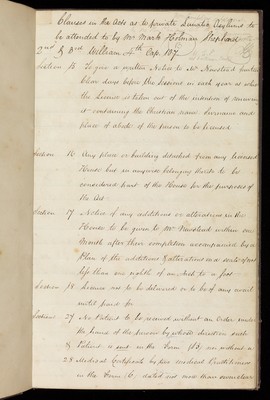 Clauses in the Acts as to private Lunatic Asylums to
be attended to by Mr Mark Holman Shephard
2nd & 3rd William 4th Cap. 107
Section 15 To give a written Notice to Mr Newstead fourteen
Clear days before the Sessions in each year at which
the Licence is taken out of the intention of renewing
it containing the Christian name Surname and
place of abode of the person to be licensed
Section 16 Any place or building detached from any licensed
House but in anywise belonging thereto to be
considered part of the House for the purposes of
the Act
Section 17 Notice of any additions or alterations in the
House to be given to Mr Newstead within one
Month after their completion accompanied by a
Plan of the additions & alterations on a scale of not
less than one eighth of an Inch to a foot
Section 18 Licence not to be delivered or to be of any avail
until paid for
Section 27 No Patient to be received without an Order under
the hand of the person by whose direction such
& Patient is sent in the Form (B) and without a
28 Medical Certificate by two medical Practitioners
in the Form (C) dated not more than seven clear